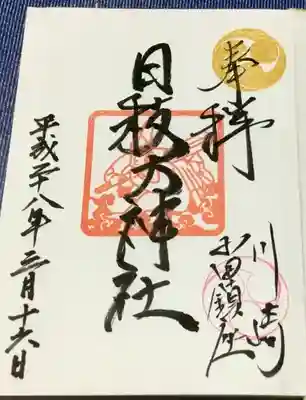 奉拝
川崎
小田鎮座
日枝大神社
平成二十八年三月十六日